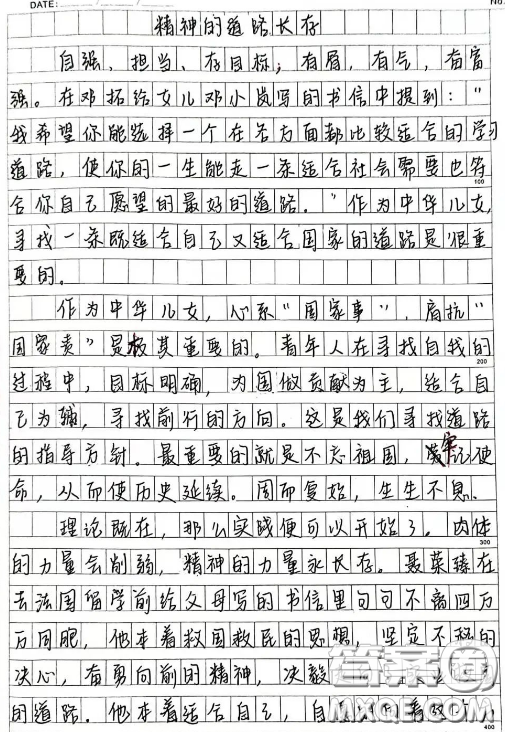 DATE:
No.
精神的道路长存
自强、担当、存目标；有眉，有气，有富
强。在邓拓给女儿邓小岚写的书信中提到："
我希望你能选择一个在各方面都比较适合的学习
道路，使你的一生能走一条适合社会需要也符
合你自己愿望的最好的道路。"作为中华儿女，
100
寻找一条既适合自己又适合国家的道路是很重
要的。
作为中华儿女，心系"国家事"，肩抗"
国家责"是极其重要的。青年人在寻找自我的
200
过程中，目标明确，为国做贡献为主，结合自
己为辅，寻找前行的方向。这是我们寻找道路
的指导方针。最重要的就是不忘祖国，牢记使
命，从而使历史延续。周而复始，生生不息。
理论既在，那么实践便可以开始了。肉体
300
的力量会削弱，精神的力量永长存。聂荣臻在
去法国留学前给父母写的书信里句句不离四万
万同胞，他本着救国救民的思想，坚定不移的
决心，有勇向前的精神，决毅
的道路。他本着适合自己，自
400
答案圈